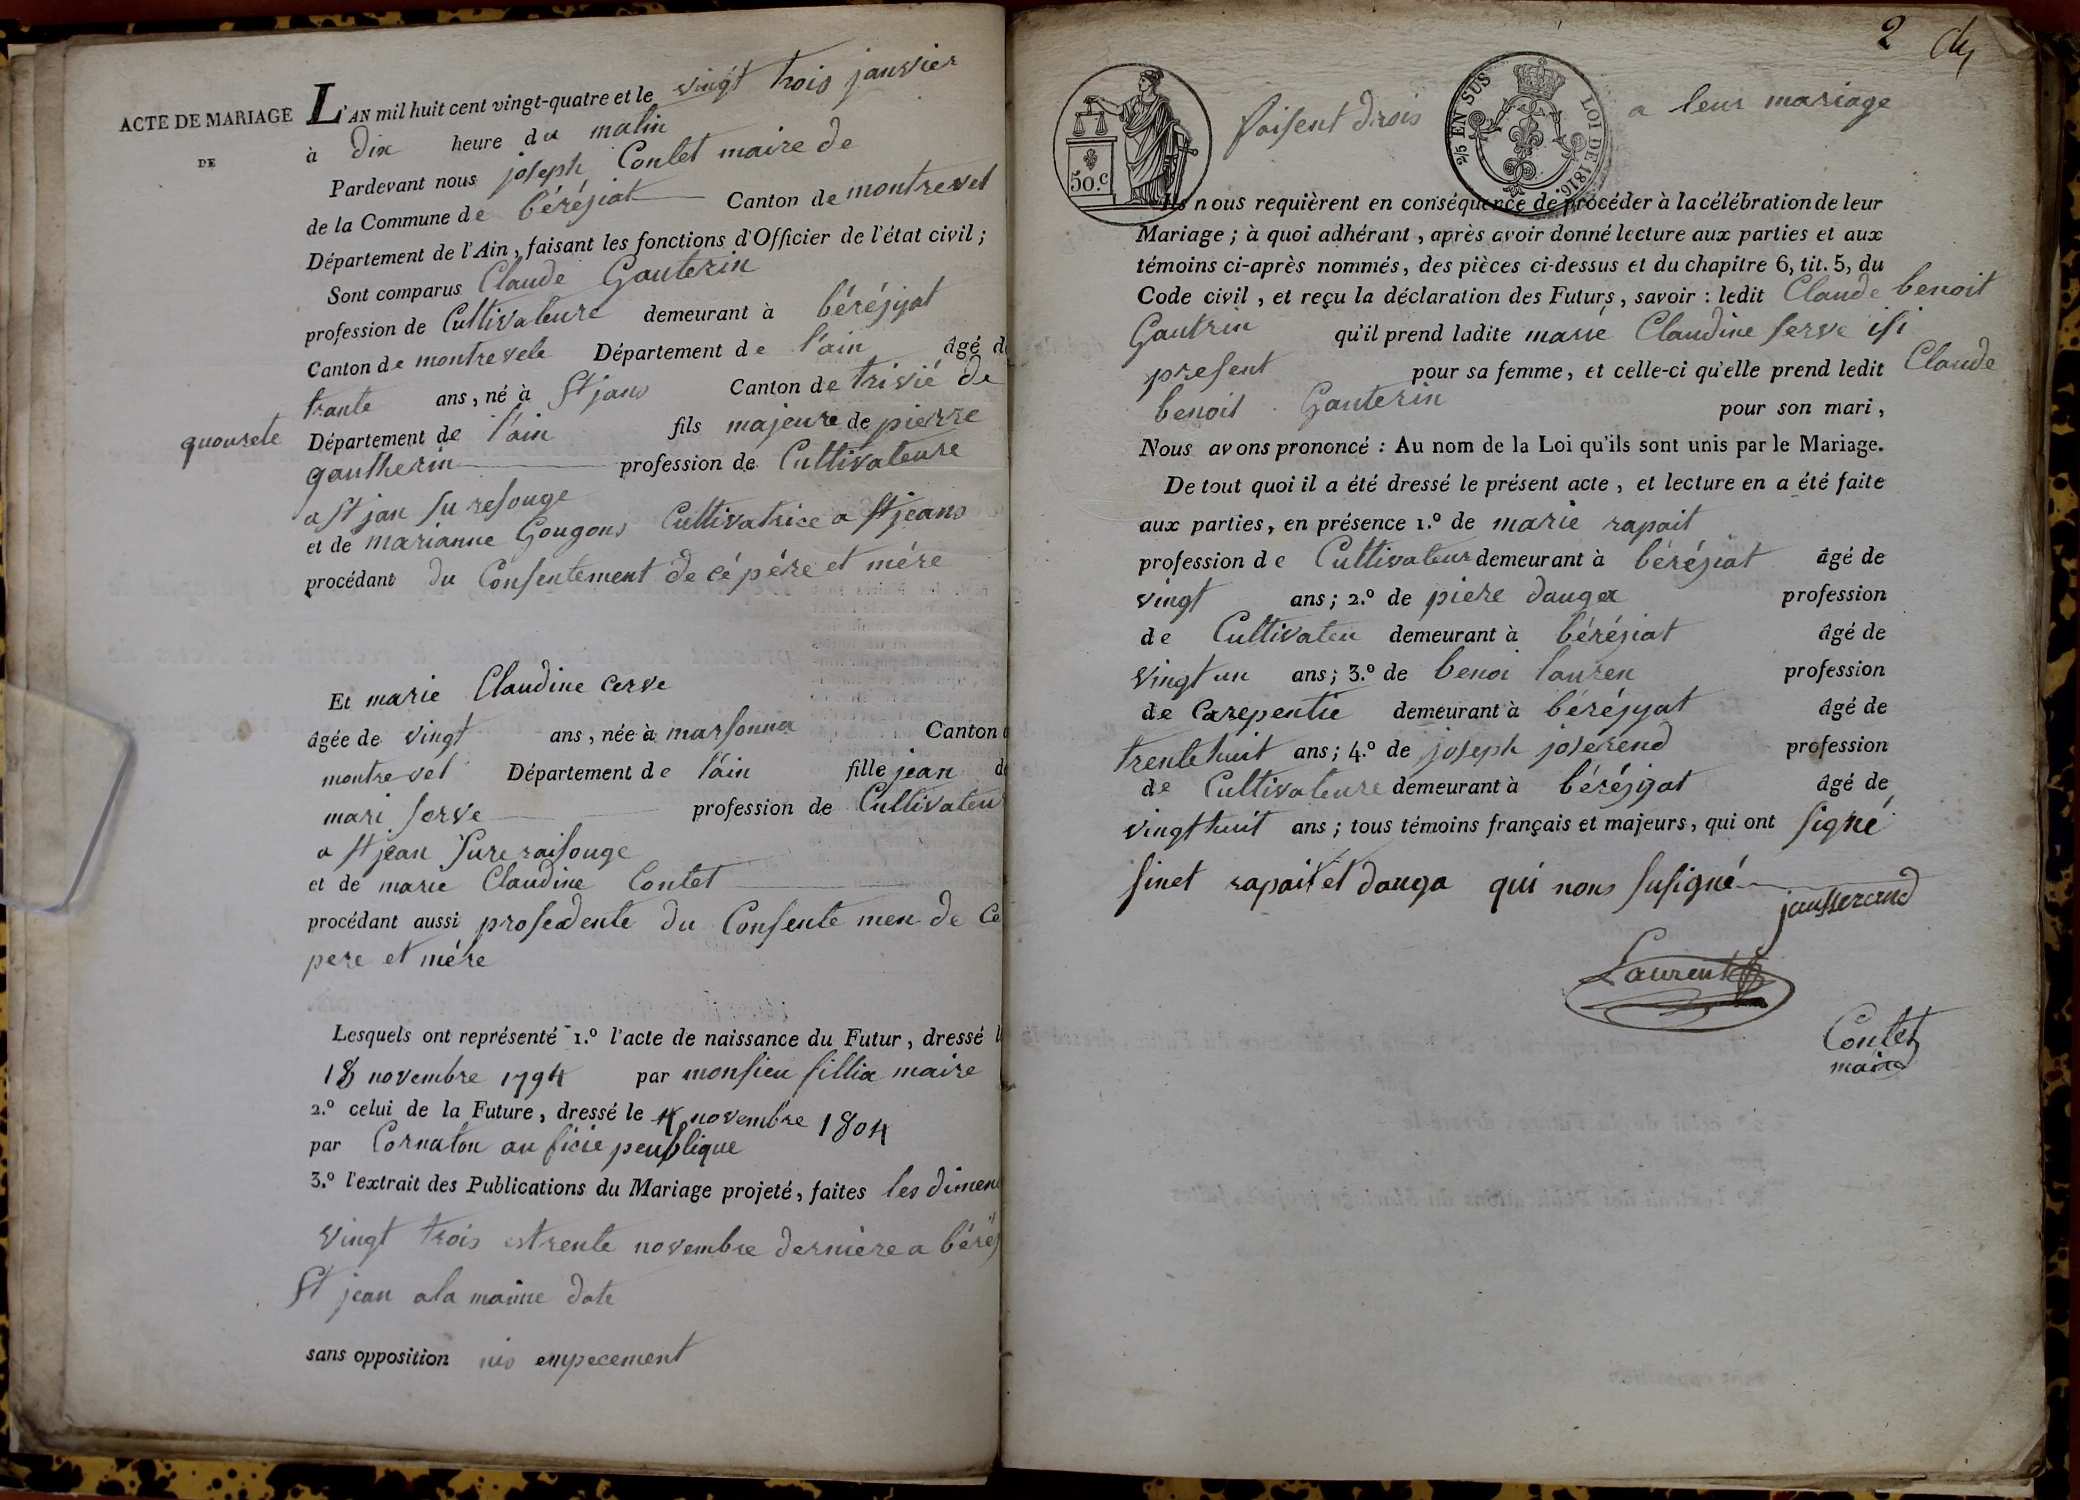 ACTE DE MARIAGE
DE
L'AN mil huit cent vingt-quatre et le vingt trois janvier
à dix heure du matin
Pardevant nous joseph Contet maire de
de la Commune de béréjiat Canton de montrevel
Département de l'Ain, faisant les fonctions d'Officier de l'état civil;
Sont comparus Claude Gauterin
profession de Cultivateure demeurant à béréjyat
Canton de montrevele Département de l'ain âgé d
trante ans, né à St jans Canton de trivié de
quourete Département de l'ain fils majeure de pierre
gautherin profession de Cultivateure
a St jan su resouge
et de marianne Gougons Cultivatrice a St jeans
procédant du Consentement de cé pére et mére
Et marie Claudine cerve
âgée de vingt ans, née à marsonna Canton
montrevel Département de l'ain fille jean d
mari serve profession de Cultivateu
a St jean sure raisouge
et de marie Claudine Contet
procédant aussi prosedente du Consente men de Ce
pere et mére
Lesquels ont représenté 1.º l'acte de naissance du Futur, dressé l
18 novembre 1794 par monsieu sillia maire
2.º celui de la Future, dressé le 4 novembre 1804
par Cornaton au ficie peublique
3.º l'extrait des Publications du Mariage projeté, faites les dimen
vingt trois estrente novembre dernière a béréj
St jean a la maime date
sans opposition nis empecement
2
50.c
2/5 EN SUS
LOI DE 1816.
faisent drois a leur mariage
Ils nous requièrent en conséquence de procéder à la célébration de leur
Mariage; à quoi adhérant, après avoir donné lecture aux parties et aux
témoins ci-après nommés, des pièces ci-dessus et du chapitre 6, tit. 5, du
Code civil, et reçu la déclaration des Futurs, savoir : ledit Claude benoit
Gautrin qu'il prend ladite marie Claudine serve isi
present pour sa femme, et celle-ci qu'elle prend ledit Claude
benoit Gauterin pour son mari,
Nous avons prononcé : Au nom de la Loi qu'ils sont unis par le Mariage.
De tout quoi il a été dressé le présent acte, et lecture en a été faite
aux parties, en présence 1.º de marie rapait
profession de Cultivateur demeurant à béréjiat âgé de
vingt ans; 2.º de piere danga profession
de Cultivateu demeurant à béréjiat âgé de
vingt un ans; 3.º de benoi lauren profession
de Carepentie demeurant à béréjyat âgé de
trente huit ans; 4.º de joseph joserend profession
de Cultivateure demeurant à béréjyat âgé de
vingt huit ans; tous témoins français et majeurs, qui ont signé
sinet rapait et danga qui nons susigné
jausserand
Laurent
Contet
maire